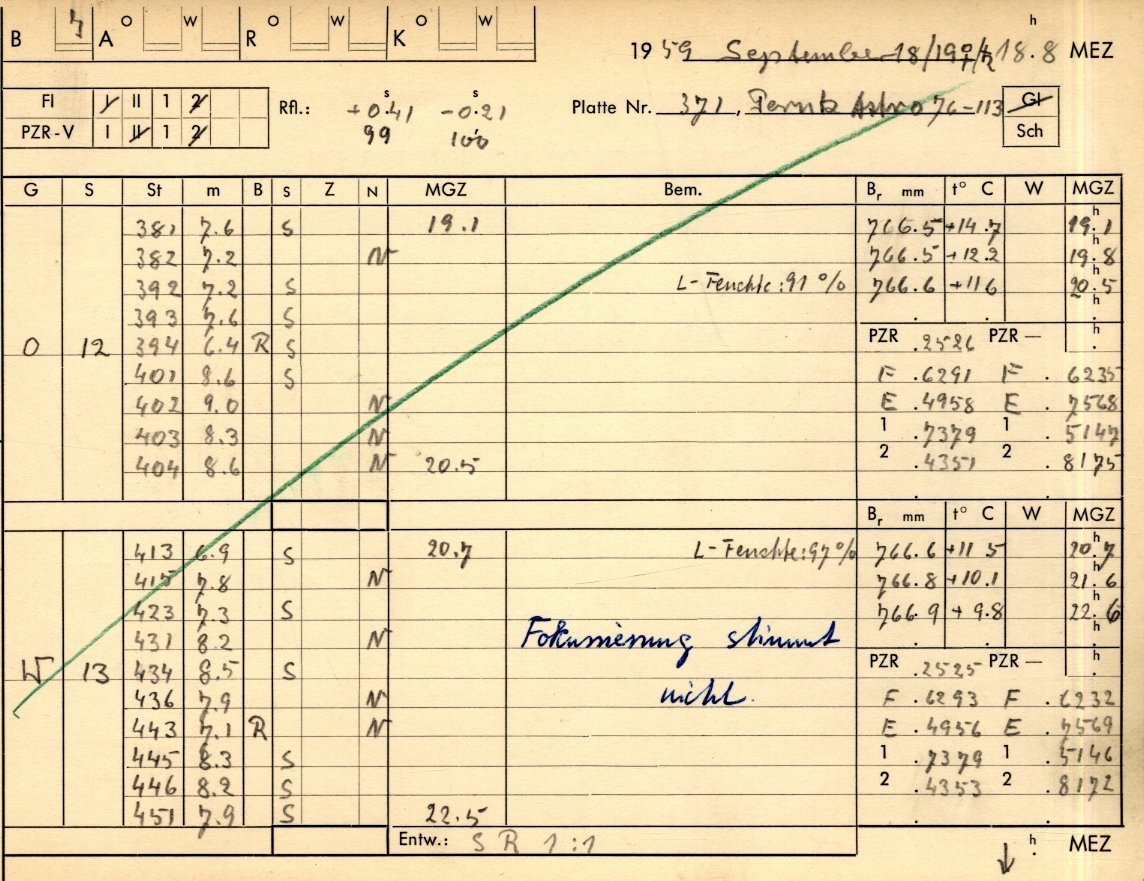 B 4 A O W R O W K O W h
19 59 September 18/19 18.8 MEZ
FI I II 1 2 Rfl.: +0.41 s -0.21 s Platte Nr. 371, Astro 76-113 Gl
PZR-V I II 1 2 99 100 Sch
G S St m B S Z N MGZ Bem. Br mm t° C W MGZ
381 7.6 S 19.1 766.5 +14.7 19.1 h
382 7.2 N 766.5 +12.2 19.8 h
392 7.2 S L-Feuchte: 91 % 766.6 +11 6 20.5 h
393 7.6 S . . h
O 12 394 6.4 R S PZR .2526 PZR — h
401 8.6 S F .6291 F . 6235
402 9.0 N E .4958 E . 7568
403 8.3 N 1 .7379 1 . 5147
404 8.6 N 20.5 2 .4351 2 . 8175
Br mm t° C W MGZ
413 6.9 S 20.7 L-Feuchte: 97 % 766.6 +11 5 20.7 h
415 7.8 N 766.8 +10.1 21.6 h
423 7.3 S 766.9 +9.8 22.6 h
431 8.2 N Fokussierung stimmt . . h
W 13 434 8.5 S PZR .2525 PZR — h
436 7.9 N nicht. F .6293 F . 6232
443 7.1 R N E .4956 E . 7569
445 8.3 S 1 .7379 1 . 5146
446 8.2 S 2 .4353 2 . 8172
451 7.9 S 22.5
Entw.: S R 1:1 h MEZ